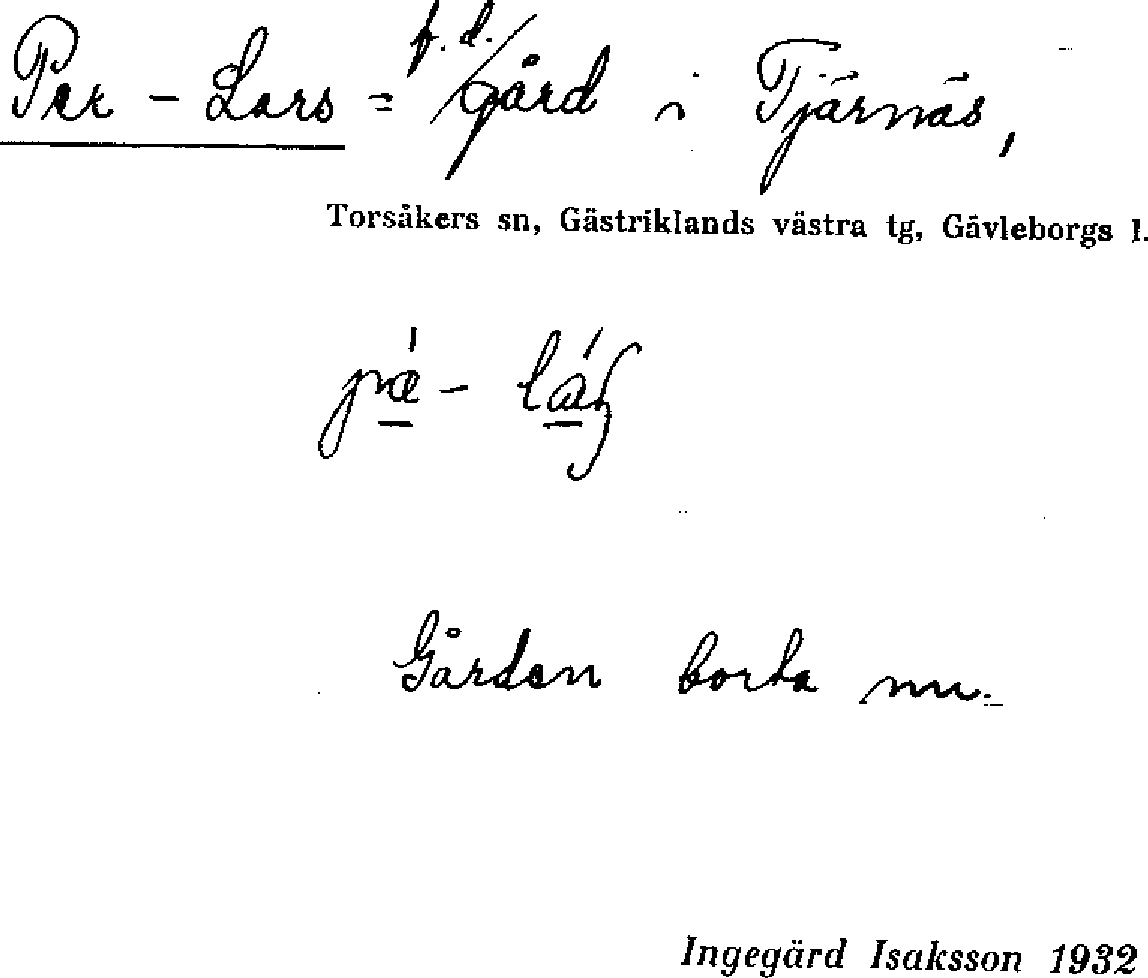 Per - Lars = f.d. gård i Tjärnäs,
Torsåkers sn, Gästriklands västra tg, Gävleborgs l.
Gården borta nu.
Ingegärd Isaksson 1932